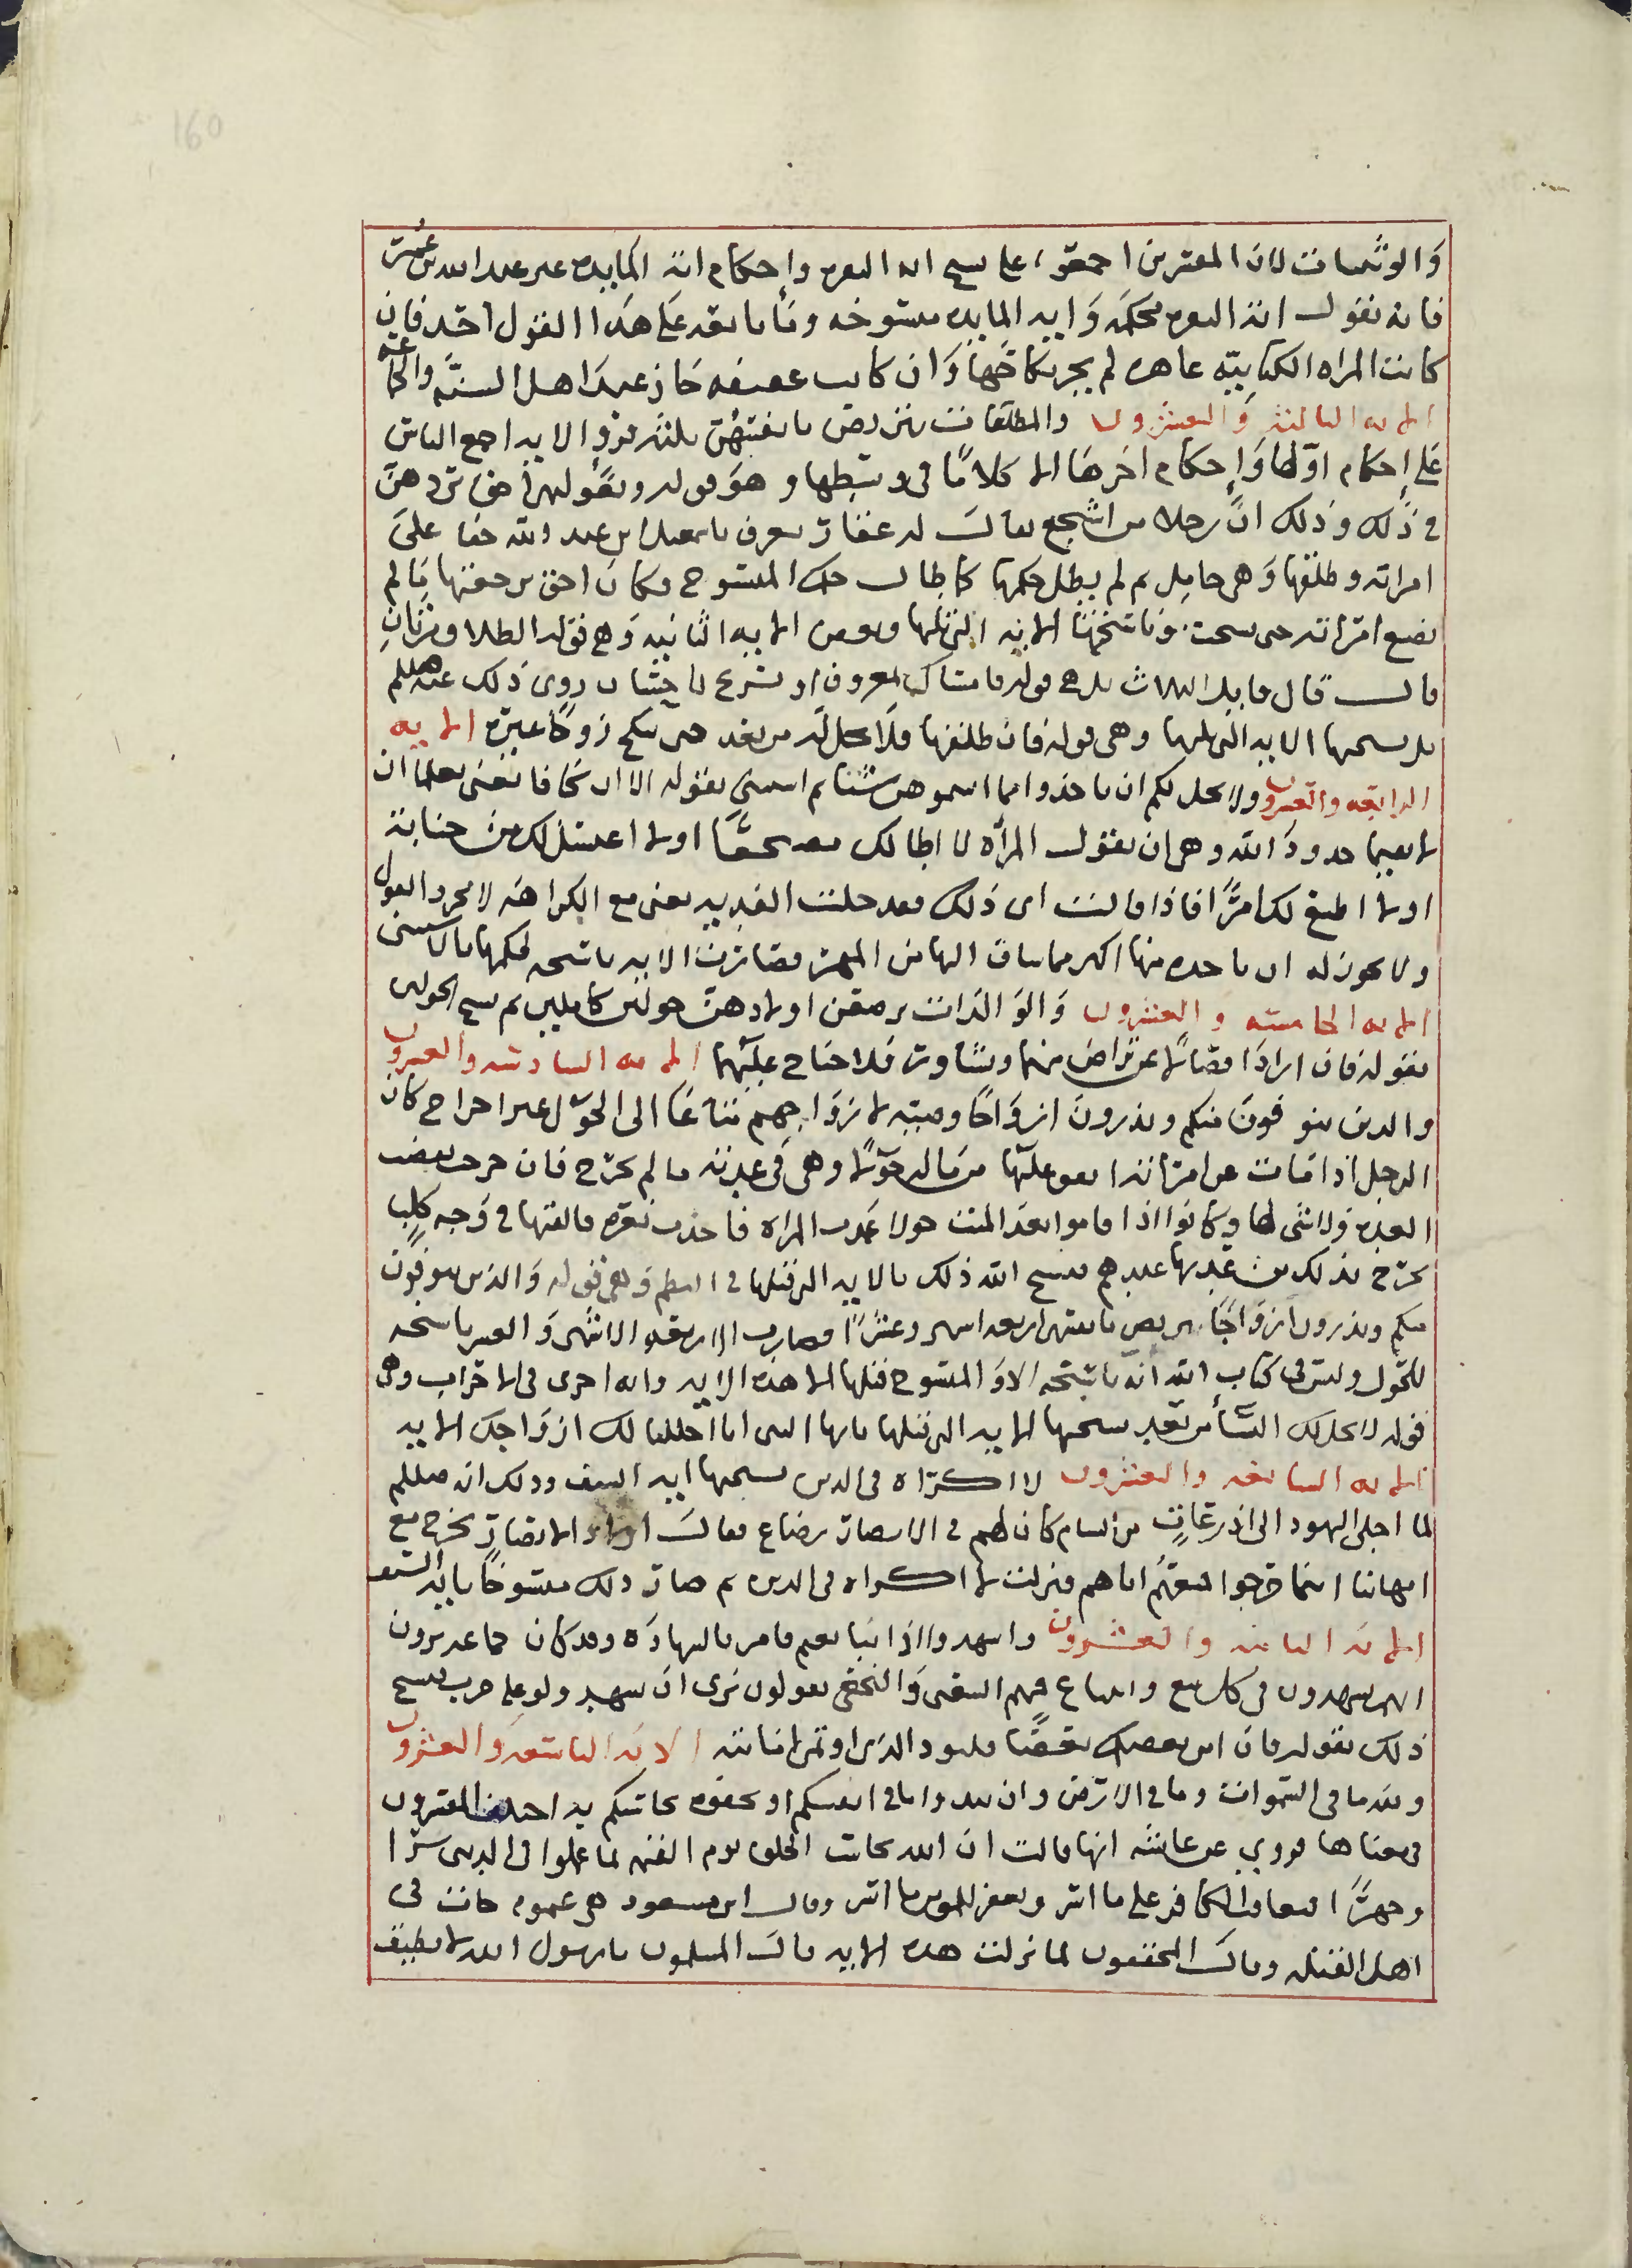 160
والوثنيات لان المفسرين اجمعوا على نسخ ايه البقره واحكام ايه المايده غير عبدالله بن عمر
فانه يقول ايه البقره محكمه وايه المايده منسوخه وما تابعه على هذا القول احد فان
كانت المراه الكتابيه عاهره لم يجز نكاحها وان كانت عفيفه جاز عند اهل السنه والجماعه
الايه الثالثه والعشرون والمطلقات يتربصن بانفسهن ثلثه قرو الايه اجمع الناس
على احكام اولها واحكام اخرها الا كلاما في وسطها وهو قوله وبعولتهن احق بردهن
في ذلك وذلك ان رجلا من اشجع يقال له غفار يعرف باسمعيل بن عبد الله جفا على
امراته وطلقها وهي حامل ثم لم يطل حكمها كما طال حكم المنسوخ وكان احق برجعتها ما لم
تضع امراته حتى نسخت وناسخها الايه التي تليها وبعض الايه الثانيه وهي قوله الطلاق مرتان
قال قال قايل الثلاث قوله فامساك بمعروف او تسريح باحسان روي ذلك عنه صللم
بل نسختها الايه التي تليها وهي قوله فان طلقها فلا تحل له من بعد حتى تنكح زوجا غيره الايه
الرابعه والعشرون ولا يحل لكم ان تاخذوا مما اتيتموهن شيئا ثم استثنى بقوله الا ان يخافا يعني يعلما ان
لا يقيما حدود الله وهي ان تقول المراه لا اطا لك مضجعا او لا اغتسل لك من جنابه
او لا اطيع لك امرا فاذا قالت اي ذلك فقد حلت الفديه يعني مع الكراهه لا مجرد القول
ولا يجوز له ان ياخذ منها اكثر مما ساق اليها من المهر فصارت الايه ناسخه لحكمها بالاستثنى
الايه الخامسه والعشرون والوالدات يرضعن اولادهن حولين كاملين ثم نسخ الحولين
بقوله فان ارادا فصالا عن تراض منهما وتشاور فلا جناح عليهما الايه السادسه والعشرون
والذين يتوفون منكم ويذرون ازواجا وصيه لازواجهم متاعا الى الحول غير اخراج كان
الرجل اذا مات عن امراته انفق عليها من ماله حولا وهي في عدته ما لم تخرج فان خرجت بعض
العده ولا شي لها وكانوا اذا اقاموا بعد الميت حولا عمدت المراه فاخذت بعره فالقتها في وجه كلب
تخرج بذلك من عدتها عندهم فنسخ الله ذلك بالايه التي قبلها في النظم وهي قوله والذين يتوفون
منكم ويذرون ازواجا يتربصن بانفسهن اربعه اشهر وعشرا فصارت الاربعه الاشهر والعشر ناسخه
للحول وليس في كتاب الله ايه ناسخه الا والمنسوخ قبلها الا هذه الايه وايه اخرى في الاحزاب وهي
قوله لا يحل لك النسا من بعد نسختها الايه التي قبلها ياايها النبي انا احللنا لك ازواجك الايه
الايه السابعه والعشرون لا اكراه في الدين نسختها ايه السيف وذلك انه صللم
لما اجلى اليهود الى اذرعات من الشام كان لهم في الانصار رضاع فقالت اولاد الانصار نخرج مع
امهاتنا اينما خرجوا فمنعهم اباهم فنزلت لا اكراه في الدين ثم صار ذلك منسوخا بايه السيف
الايه الثامنه والعشرون واشهدوا اذا تبايعتم فامر بالشهاده وقد كان جماعه يرون
انهم يشهدون في كل بيع وابتياع منهم الشعبي والنخعي يقولون نرى ان نشهد ولو على حزب نسخ
ذلك بقوله فان امن بعضكم بعضا فليود الذي اوتمن امانته الايه التاسعه والعشرون
ولله ما في السموات وما في الارض وان تبدوا ما في انفسكم او تخفوه يحاسبكم به اختلف المفسرون
في معناها فروي عن عايشه انها قالت ان الله يحاسب الخلق يوم القيمه لما عملوا في الدنيا سرا
وجهرا افيعاقب الكافر على ما اسر ويغفر للمومن ما اسر وقال ابن مسعود هي عموم جات في
اهل القبله وقال المحققون لما نزلت هذه الايه قال المسلمون يارسول الله لا نطيق